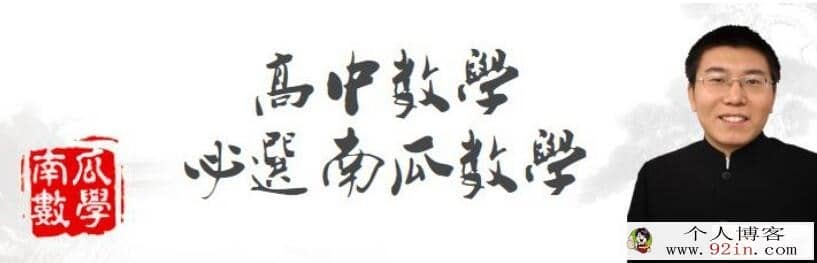 高中數學
必選南瓜數學
南瓜
數學
个人博客
www.92in.com